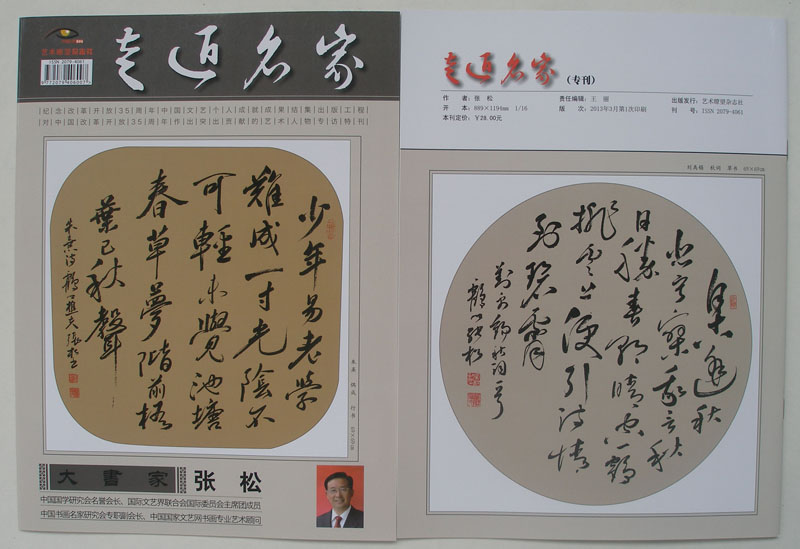 艺术瞭望杂志社
ISSN 2079-4061
走近名家
纪念改革开放35周年中国文艺个人成就成果结集出版工程
对中国改革开放35周年作出突出贡献的艺术人物专访特刊
少年易老學
難成一寸光陰不
可輕未覺池塘
春草夢階前梧
葉已秋聲
朱熹诗
朱熹 偶成 行书 69×69cm
大書家 张松
中国国学研究会名誉会长、国际文艺界联合会国际委员会主席团成员
中国书画名家研究会专职副会长、中国国家文艺网书画专业艺术顾问
走近名家(专刊)
作 者:张 松
责任编辑:王 丽
出版发行:艺术瞭望杂志社
开 本:889×1194mm 1/16
版 次:2013年3月第1次印刷
刊 号:ISSN 2079-4061
本刊定价:¥28.00元
刘禹锡 秋词 草书 69×69cm
自古逢秋
悲寂寥我言秋
日勝春朝晴空一鶴
排雲上便引詩情
到碧霄